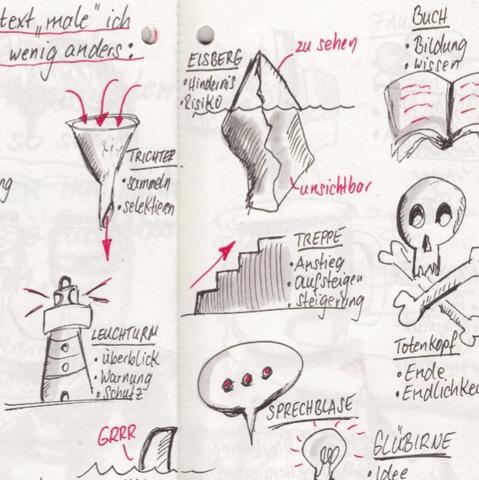 text „male" ich
wenig anders:
TRICHTER
• sammeln
• selektieren
LEUCHTTURM
• überblick
• Warnung
• Schutz
GRRR
EISBERG
• Hindernis
• Risiko
zu sehen
unsichtbar
TREPPE
• Anstieg
• aufsteigen
• Steigerung
SPRECHBLASE
BUCH
• Bildung
• wissen
Totenkopf
• Ende
• Endlichkei
GLÜBIRNE
• Idee